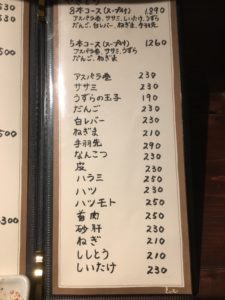 8本コース(スープ付) 1890
アスパラ巻、ササミ、しいたけ、うずら
だんご、白レバー、ねぎま、手羽先
5本コース(スープ付) 1260
アスパラ巻、ササミ、うずら
だんご、ねぎま
アスパラ巻 230
ササミ 230
うずらの玉子 190
だんご 230
白レバー 230
ねぎま 210
手羽先 290
なんこつ 230
皮 230
ハラミ 250
ハツ 230
ハツモト 250
首肉 250
砂肝 230
ねぎ 210
ししとう 210
しいたけ 230
500
300